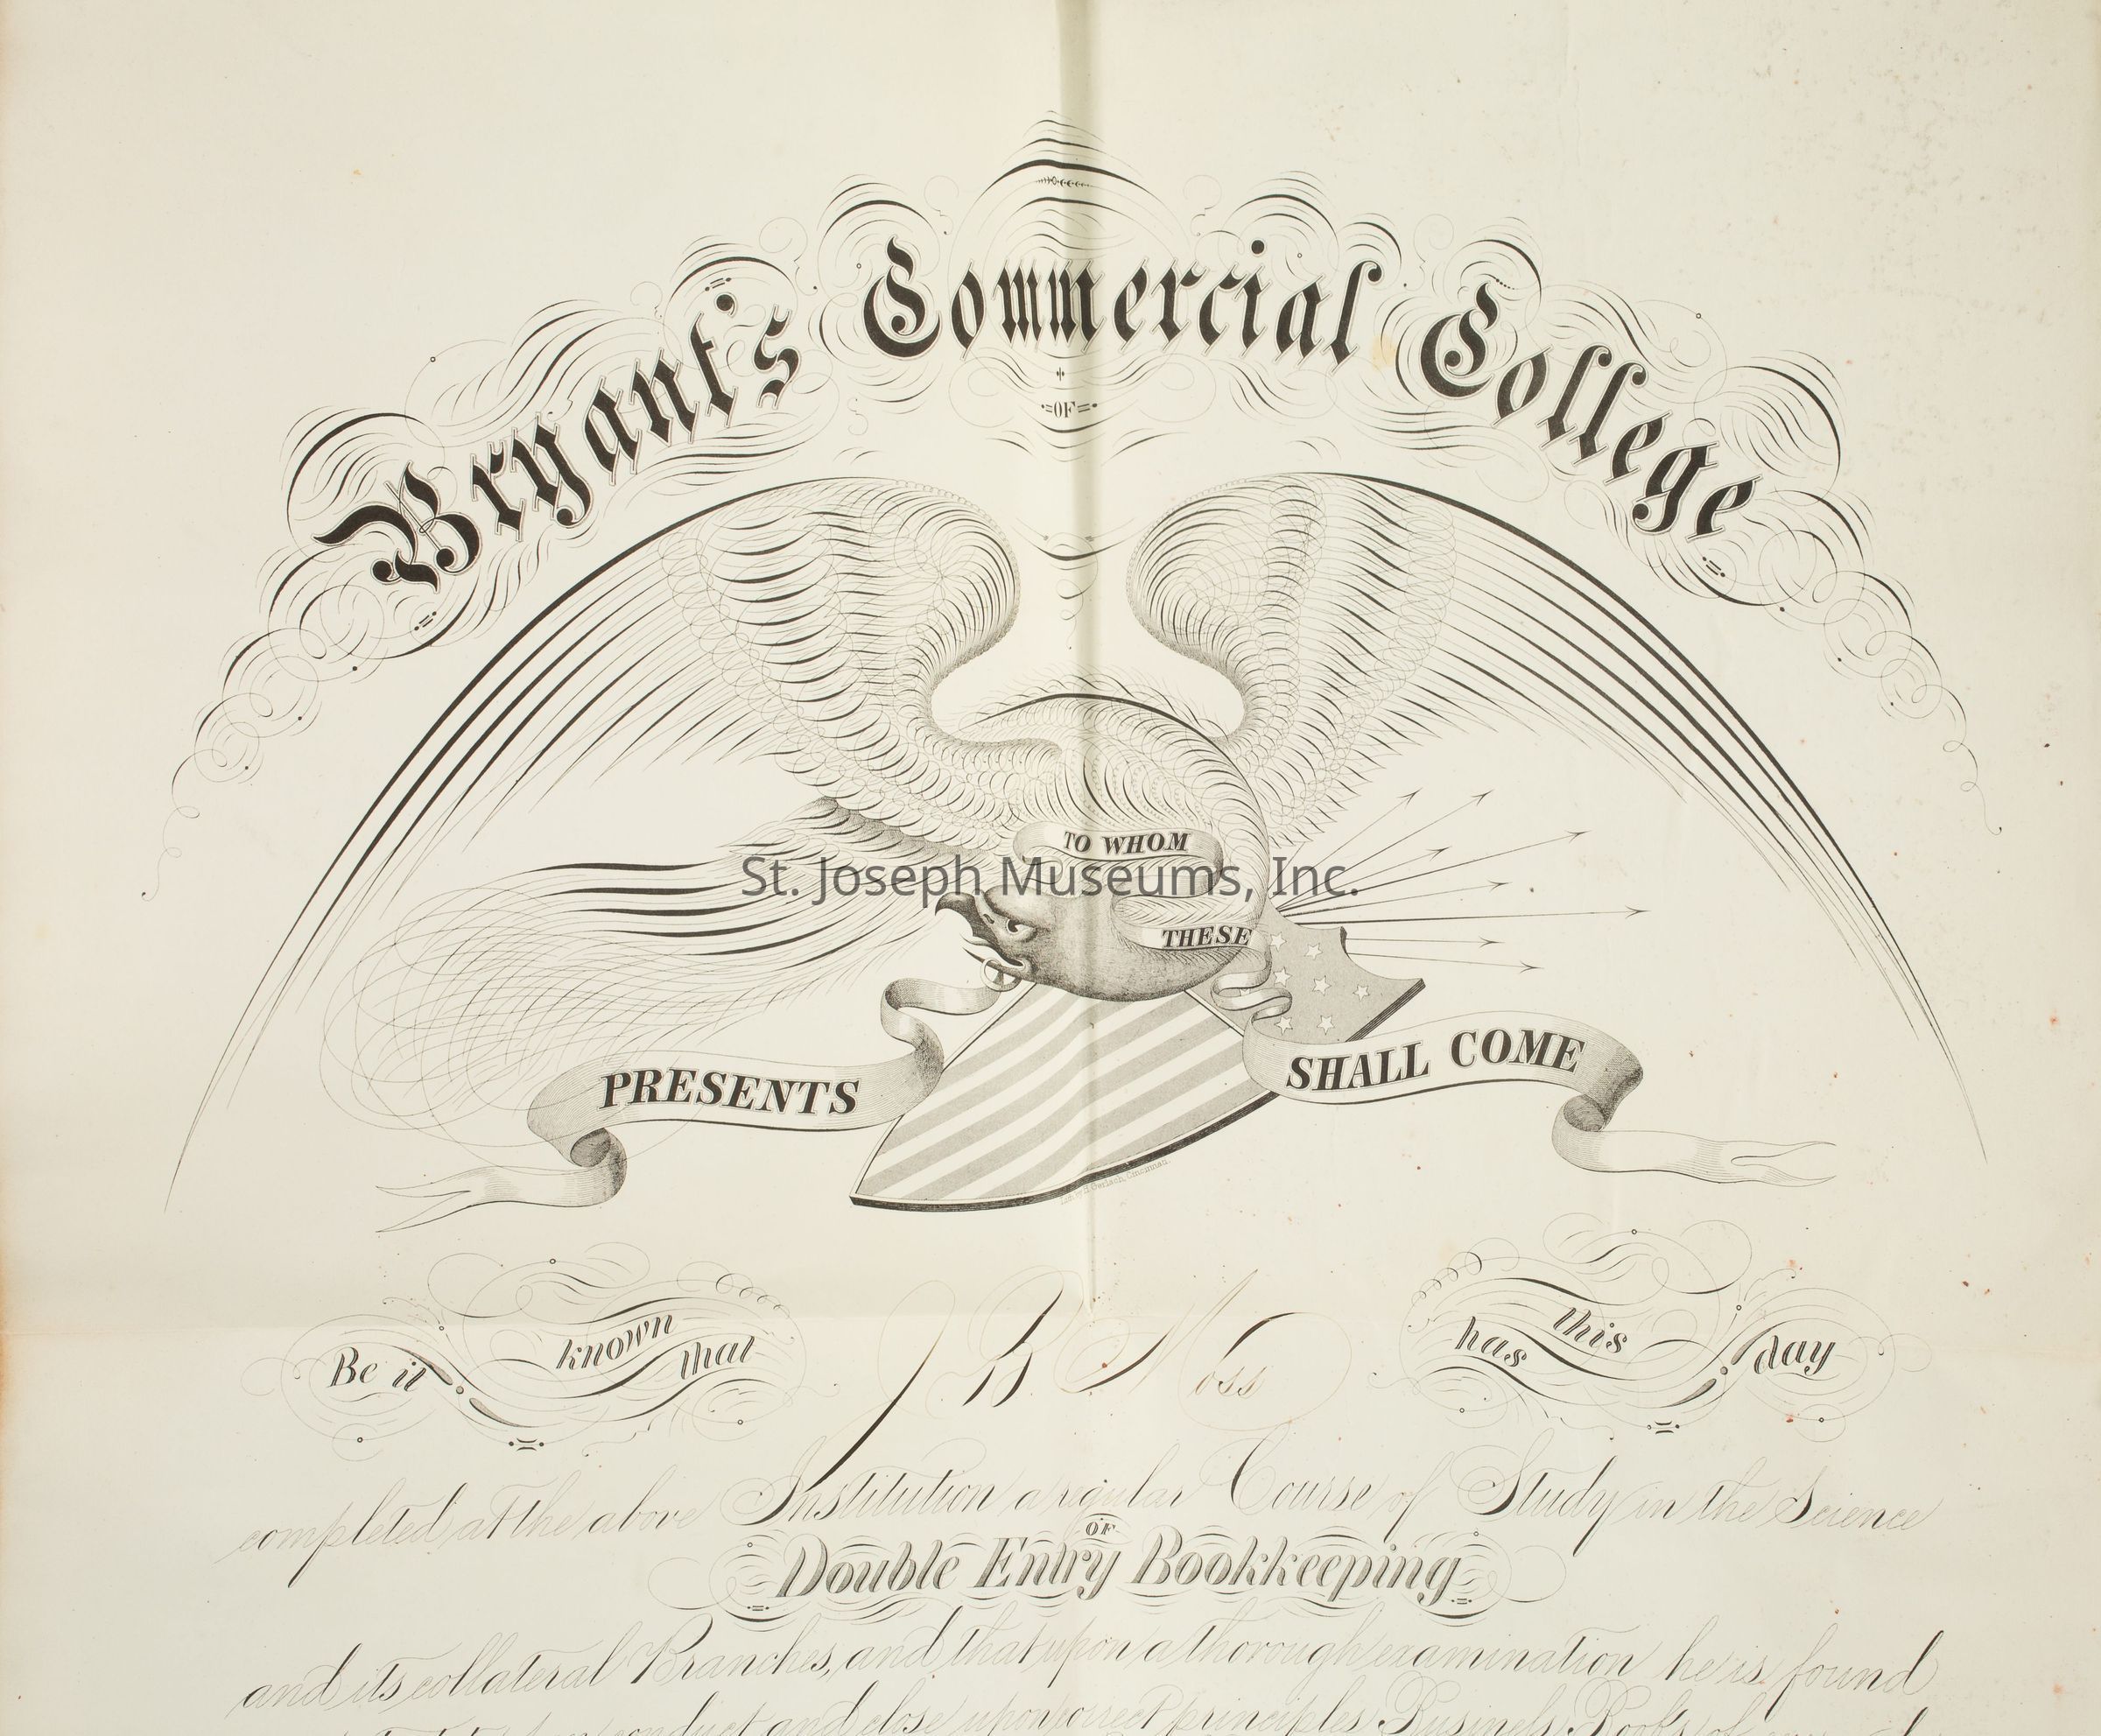 Bryant's Commercial College
OF
TO WHOM
St. Joseph Museums, Inc.
THESE
PRESENTS
SHALL COME
Gerlach, Cincinnati
Be it known that J B Moss has this day
completed at the above Institution a regular Course of Study in the Science
OF
Double Entry Bookkeeping
and its collateral Branches, and that upon a thorough examination he is found
conduct and close upon correct principles Business Books of